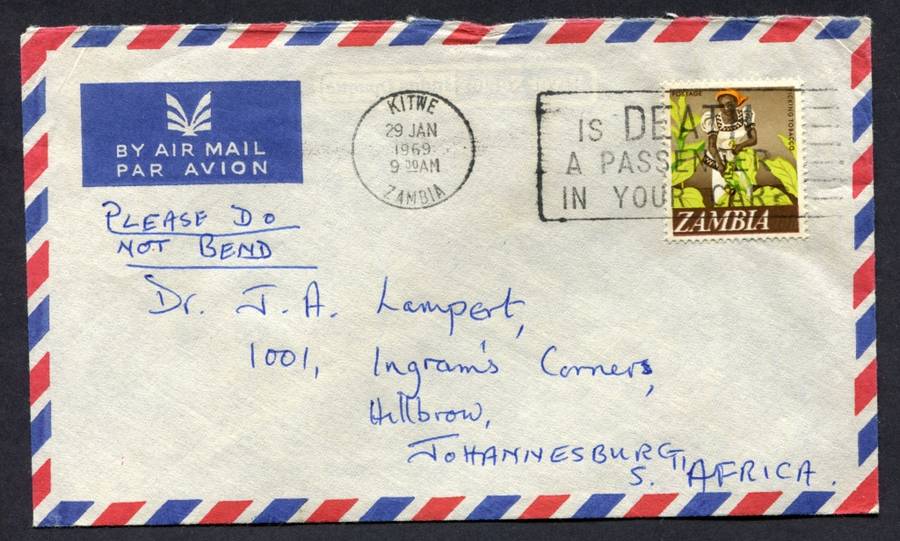 BY AIR MAIL
PAR AVION
KITWE
29 JAN
1969
9 30AM
ZAMBIA
IS DEATH
A PASSENGER
IN YOUR CAR?
POSTAGE
TOBACCO
ZAMBIA
PLEASE DO
NOT BEND
Dr. J. A. Lampert,
1001, Ingram's Corners,
Hillbrow,
JOHANNESBURG,
S. AFRICA.